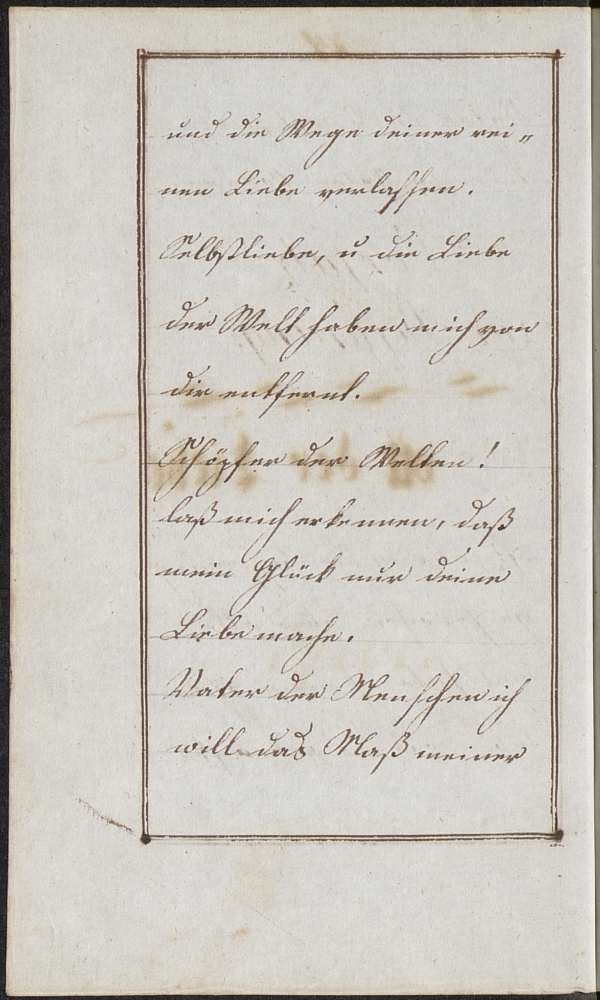 und die Wege deiner rei„
nen Liebe verlassen.
Selbstliebe, u die Liebe
der Welt haben mich von
dir entfernt.
Schöpfer der Welten!
laß mich erkennen, daß
mein Glück nur deine
Liebe mache.
Vater der Menschen ich
will das Maß meiner